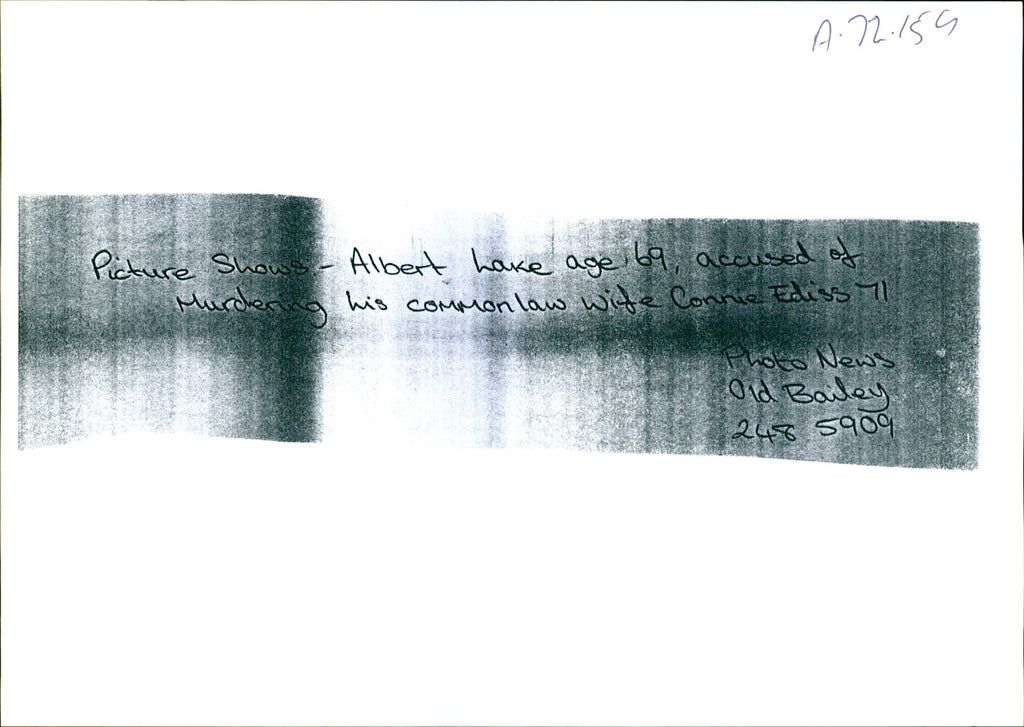 A.72.159
Picture Shows - Albert Lake age 69, accused of
Murdering his common law wife Connie Ediss 71
Photo News
Old Bailey
248 5909